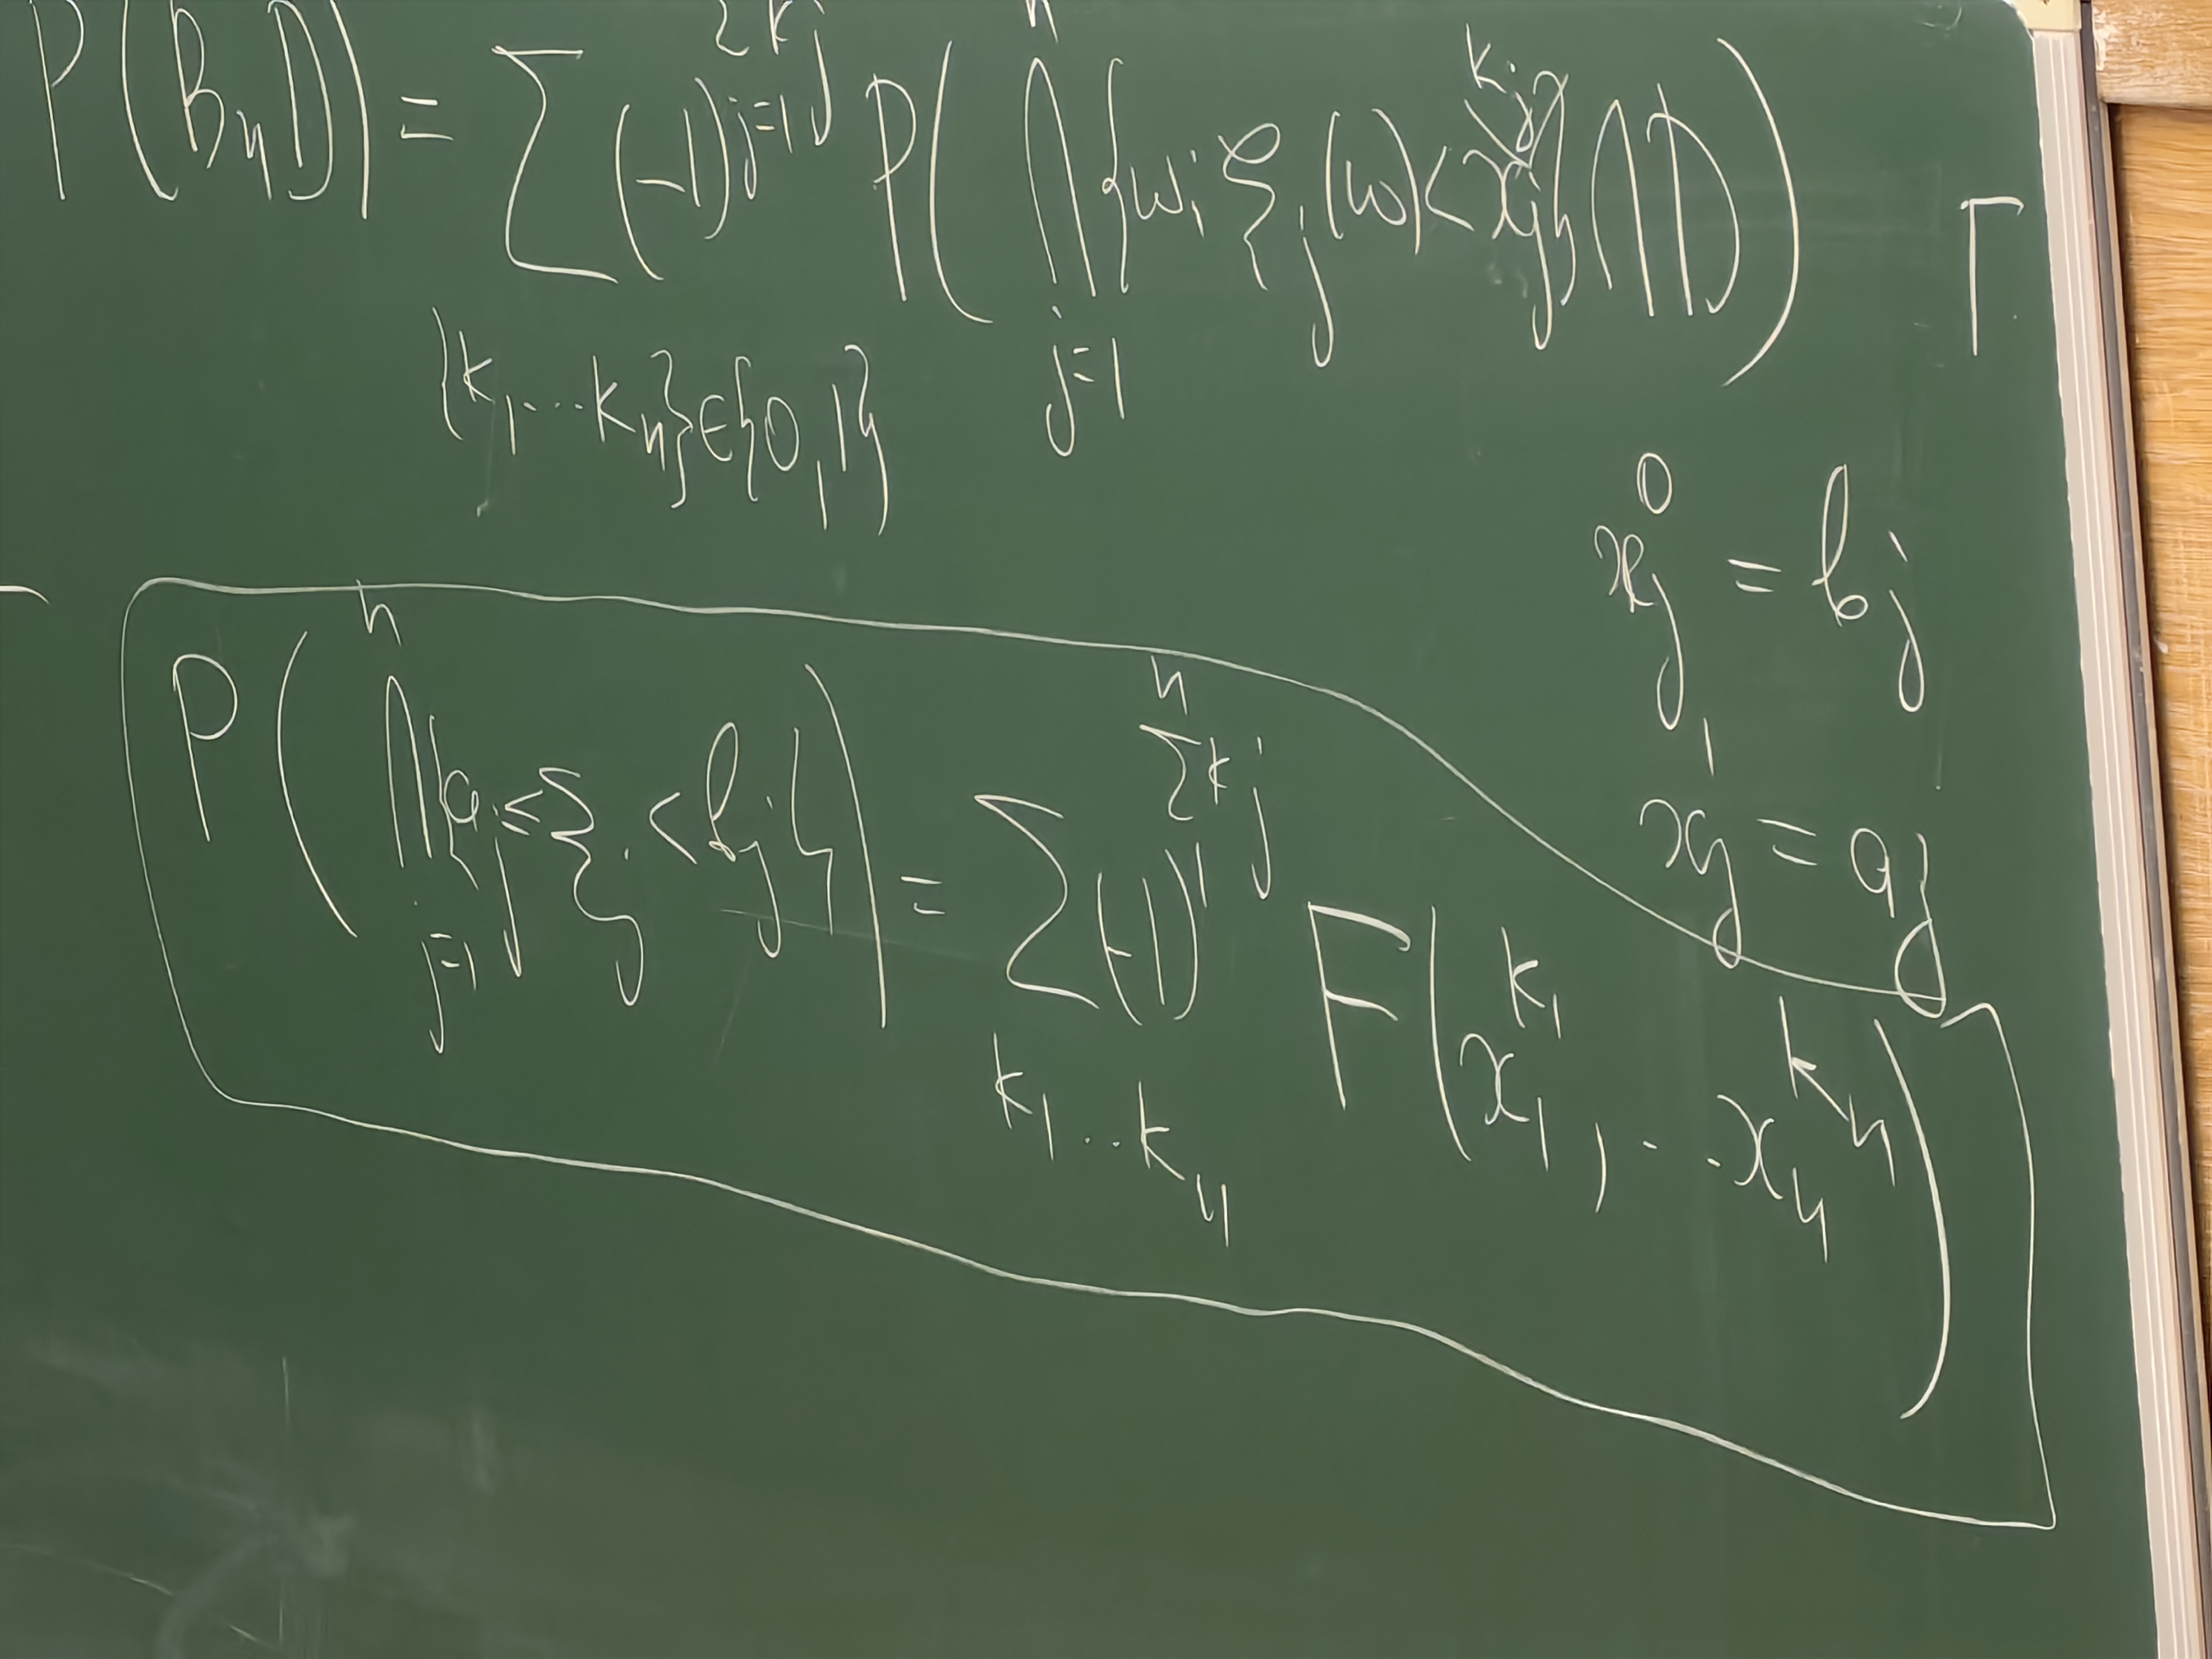 P(BₙD) = Σ_{{k₁...kₙ}∈{0,1}} (-1)^{Σ_{j=1} kⱼ} P(⋂_{j=1}^{n} {ω: ξⱼ(ω) < xⱼ^{kⱼ}} ⋂ D) Г
xⱼ⁰ = bⱼ
xⱼ¹ = aⱼ
P(⋂_{j=1}^{n} {aⱼ ≤ ξⱼ < bⱼ}) = Σ_{k₁..kₙ} (-1)^{Σ_{1}^{n} kⱼ} F(x₁^{k₁}, ... xₙ^{kₙ})